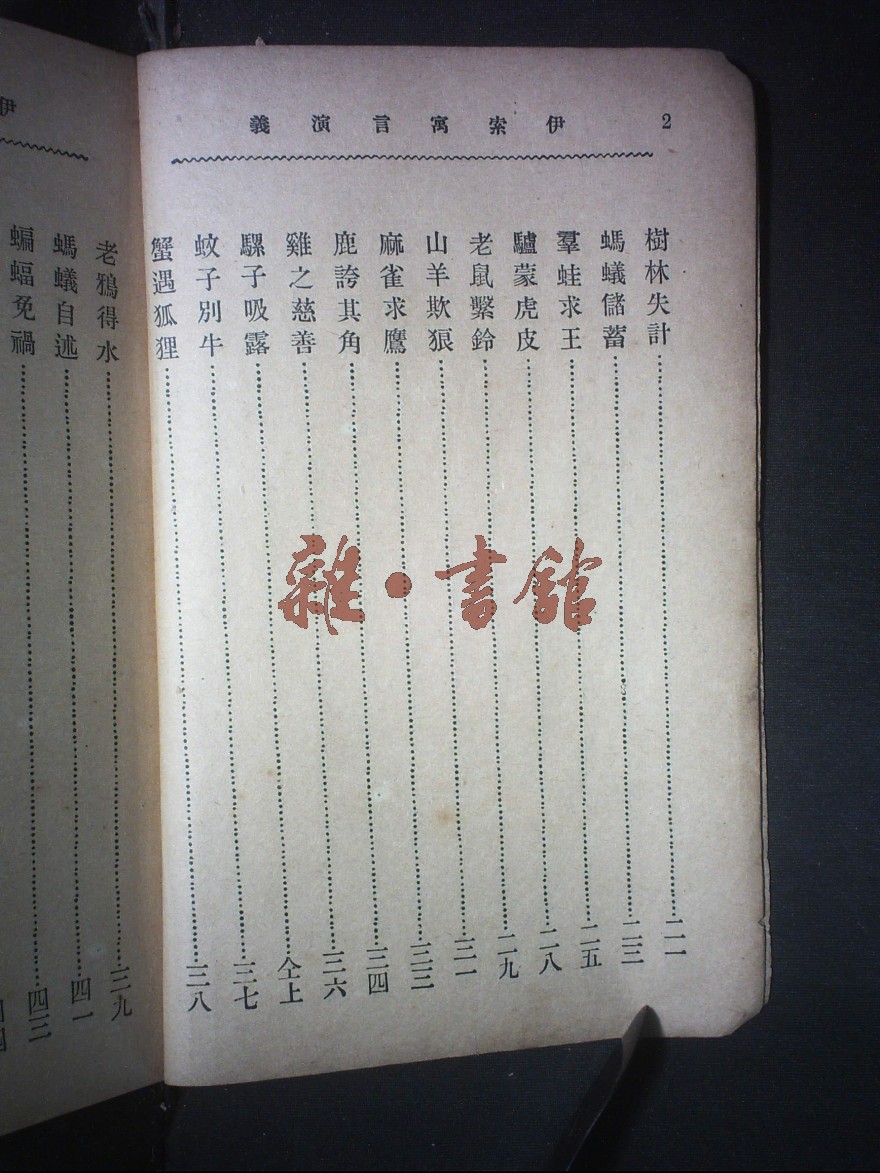 2 伊索寓言演義
樹林失計……二一
螞蟻儲蓄……二三
羣蛙求王……二五
驢蒙虎皮……二八
老鼠繫鈴……二九
山羊欺狼……三一
麻雀求鷹……三三
鹿誇其角……三四
雞之慈善……三六
騾子吸露……仝上
蚊子別牛……三七
蟹遇狐狸……三八
伊
老鴉得水……三九
螞蟻自述……四一
蝙蝠免禍……四三
雜·書館